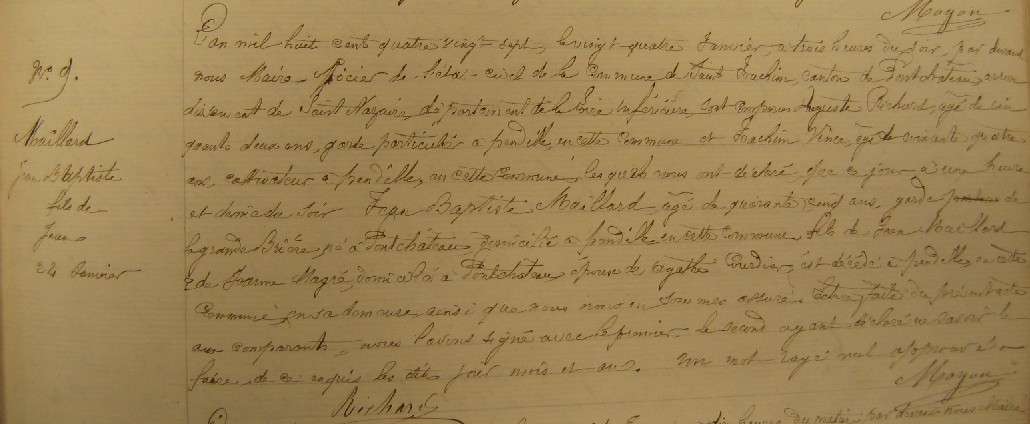 Moyon
L'an mil huit cent quatre vingt sept, le vingt quatre Janvier, a trois heures du soir, par devant
nous Maire officier de l'état civil de la commune de Saint Joachim, canton de Pontchâteau, arron
dissement de Saint Nazaire, département de la Loire inférieure, sont comparus Auguste Richard, agé de cin
quante deux ans, garde particulier a pendille, en cette commune et Joachim Vince, agé de soixante quatre
ans, cultivateur a pendille, en cette commune, lesquels nous ont déclaré que ce jour a une heure
et demie du soir Jean Baptiste Maillard, agé de quarante neuf ans, garde de
la grande Brière, né a Pontchâteau domicilié a pendille, en cette commune, fils de Jean Maillard
et de Jeanne Magré, domicilié a Pontchateau, époux de Agathe est décédé a pendille, en cette
commune, en sa demeure, ainsi que nous nous en sommes assuré. Lecture faite du présent acte
aux comparants, nous l'avons signé avec le premier le second ayant déclaré ne savoir le
faire de ce requis les dits jour mois et an. Un mot rayé nul approuvé
Moyon
Richard
No 9.
Maillard
jean Baptiste
fils de
Jean
24 Janvier